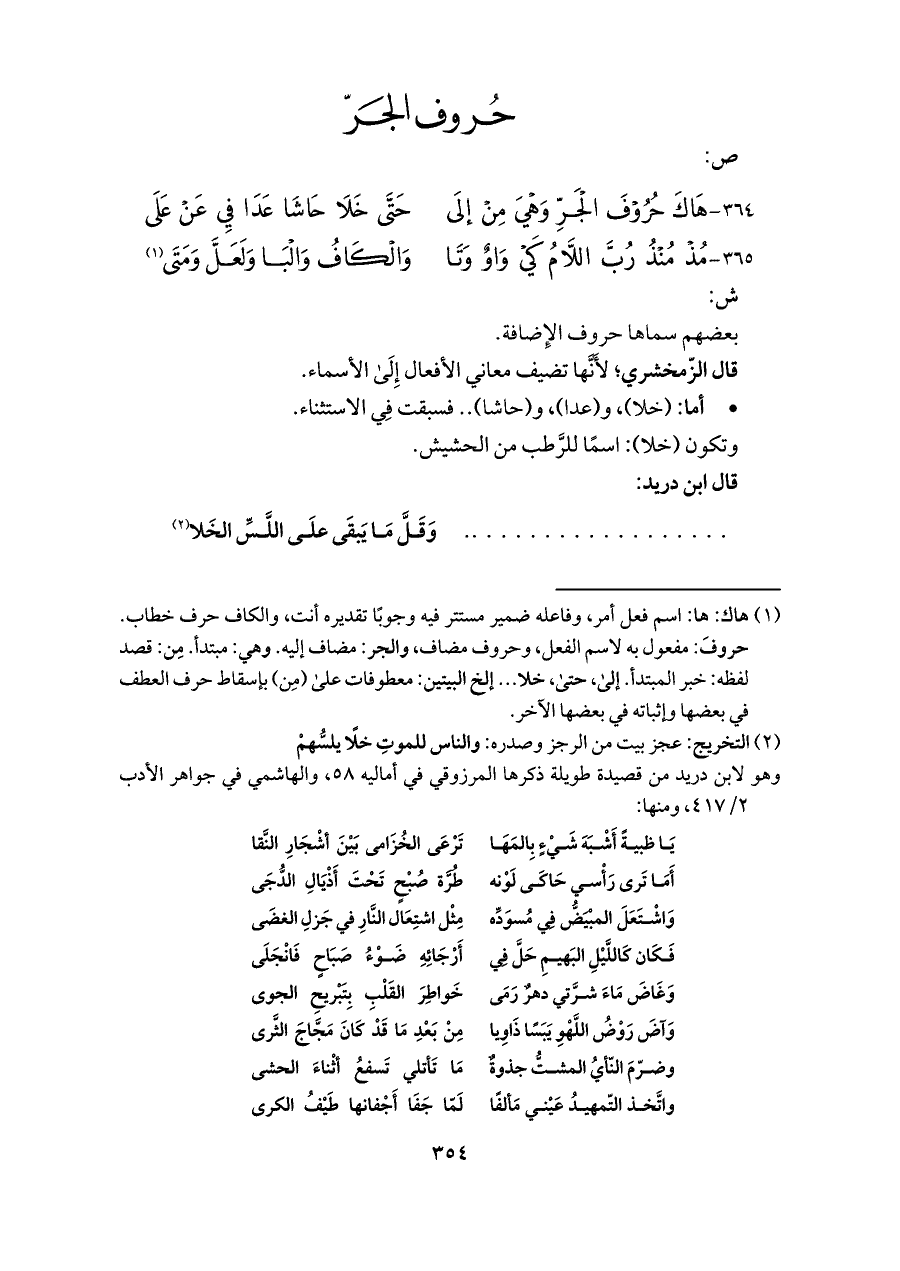 حُروف الجَرّ
ص:
٣٦٤-هَاكَ حُرُوْفَ الْجَرِّ وَهْيَ مِنْ إلَى    حَتَّى خَلَا حَاشَا عَدَا فِي عَنْ عَلَى
٣٦٥-مُذْ مُنْذُ رُبَّ اللَّامُ كَيْ وَاوٌ وَتَا    وَالْكَافُ وَالْبَا وَلَعَلَّ وَمَتَى(١)
ش:
بعضهم سماها حروف الإِضافة.
قال الزّمخشري؛ لأَنَّها تضيف معاني الأفعال إِلَىٰ الأسماء.
• أما: (خلا)، و(عدا)، و(حاشا).. فسبقت فِي الاستثناء.
وتكون (خلا): اسمًا للرَّطب من الحشيش.
قال ابن دريد:
. . . . . . . . . . . . . . . . . ..    وَقَلَّ مَا يَبقَى علَى اللَّسِّ الخَلا(٢)
(١) هاك: ها: اسم فعل أمر، وفاعله ضمير مستتر فيه وجوبًا تقديره أنت، والكاف حرف خطاب.
حروفَ: مفعول به لاسم الفعل، وحروف مضاف، والجر: مضاف إليه. وهي: مبتدأ. مِن: قصد
لفظه: خبر المبتدأ. إلىٰ، حتىٰ، خلا... إلخ البيتين: معطوفات علىٰ (مِن) بإسقاط حرف العطف
في بعضها وإثباته في بعضها الآخر.
(٢) التخريج: عجز بيت من الرجز وصدره: والناس للموتِ خلًا يلسُّهمْ
وهو لابن دريد من قصيدة طويلة ذكرها المرزوقي في أماليه ٥٨، والهاشمي في جواهر الأدب
٢/ ٤١٧، ومنها:
يَا ظبيةً أَشْبَهَ شَيْءٍ بِالمَهَا    تَرْعَى الخُزَامى بَيْنَ أشْجَارِ النَّقا
أَمَا تَرى رَأْسي حَاكَى لَوْنه    طُرَّة صُبْحٍ تَحْتَ أَذْيَالِ الدُّجَى
وَاشْتَعَلَ المبْيَضُّ فِي مُسوَدِّه    مِثْل اشتِعَال النَّارِ في جَزلِ الغضَى
فَكَان كَاللَّيْلِ البَهيمِ حَلَّ فِي    أَرْجَائِهِ ضَوْءُ صَبَاحٍ فَانْجَلَى
وَغَاضَ مَاءَ شرَّتي دهرٌ رَمَى    خَواطِرَ القَلْبِ بِتَبْريحِ الجوى
وَآضَ رَوْضُ اللَّهْوِ يَبَسًا ذَاوِيا    مِنْ بَعْدِ مَا قَدْ كَانَ مَجَّاجَ الثَّرى
وضرّمَ النّأيُ المشتُّ جذوةٌ    مَا تَأتلي تَسفعُ أثْناءَ الحشى
واتَّخذ التّمهيدُ عَيْني مَألفًا    لَمّا جَفَا أَجْفانها طَيْفُ الكرى
٣٥٤